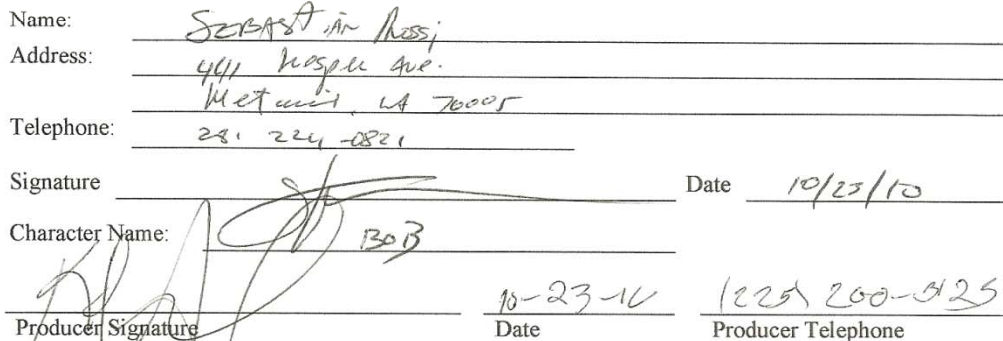 Name: SEBASTiAN Rossi
Address: 4411 Ave.
Metairie, LA 70005
Telephone: 281 224-0821
Signature Date 10/23/10
Character Name: BoB
10-23-10 (225) 200-3125
Producer Signature Date Producer Telephone